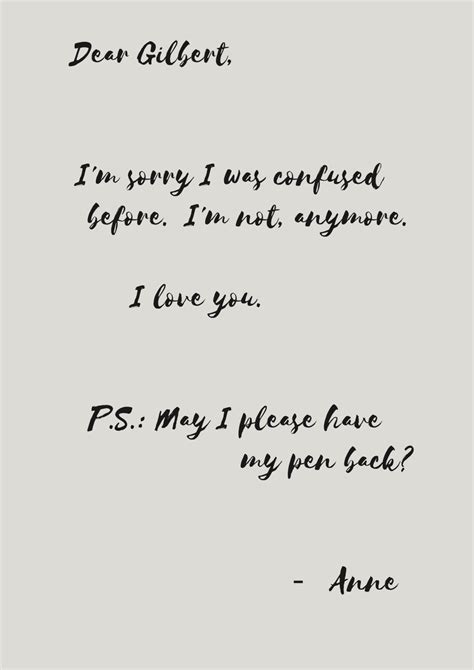 Dear Gilbert,
I'm sorry I was confused
before. I'm not, anymore.
I love you.
P.S.: May I please have
my pen back?
- Anne